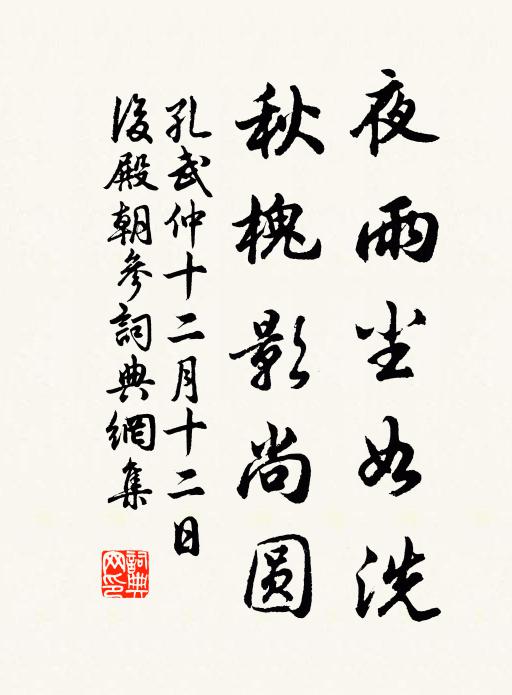 夜雨尘如洗
秋槐影尚圆
孔武仲十二月十二日
后殿朝参詞典網集
詞典网印